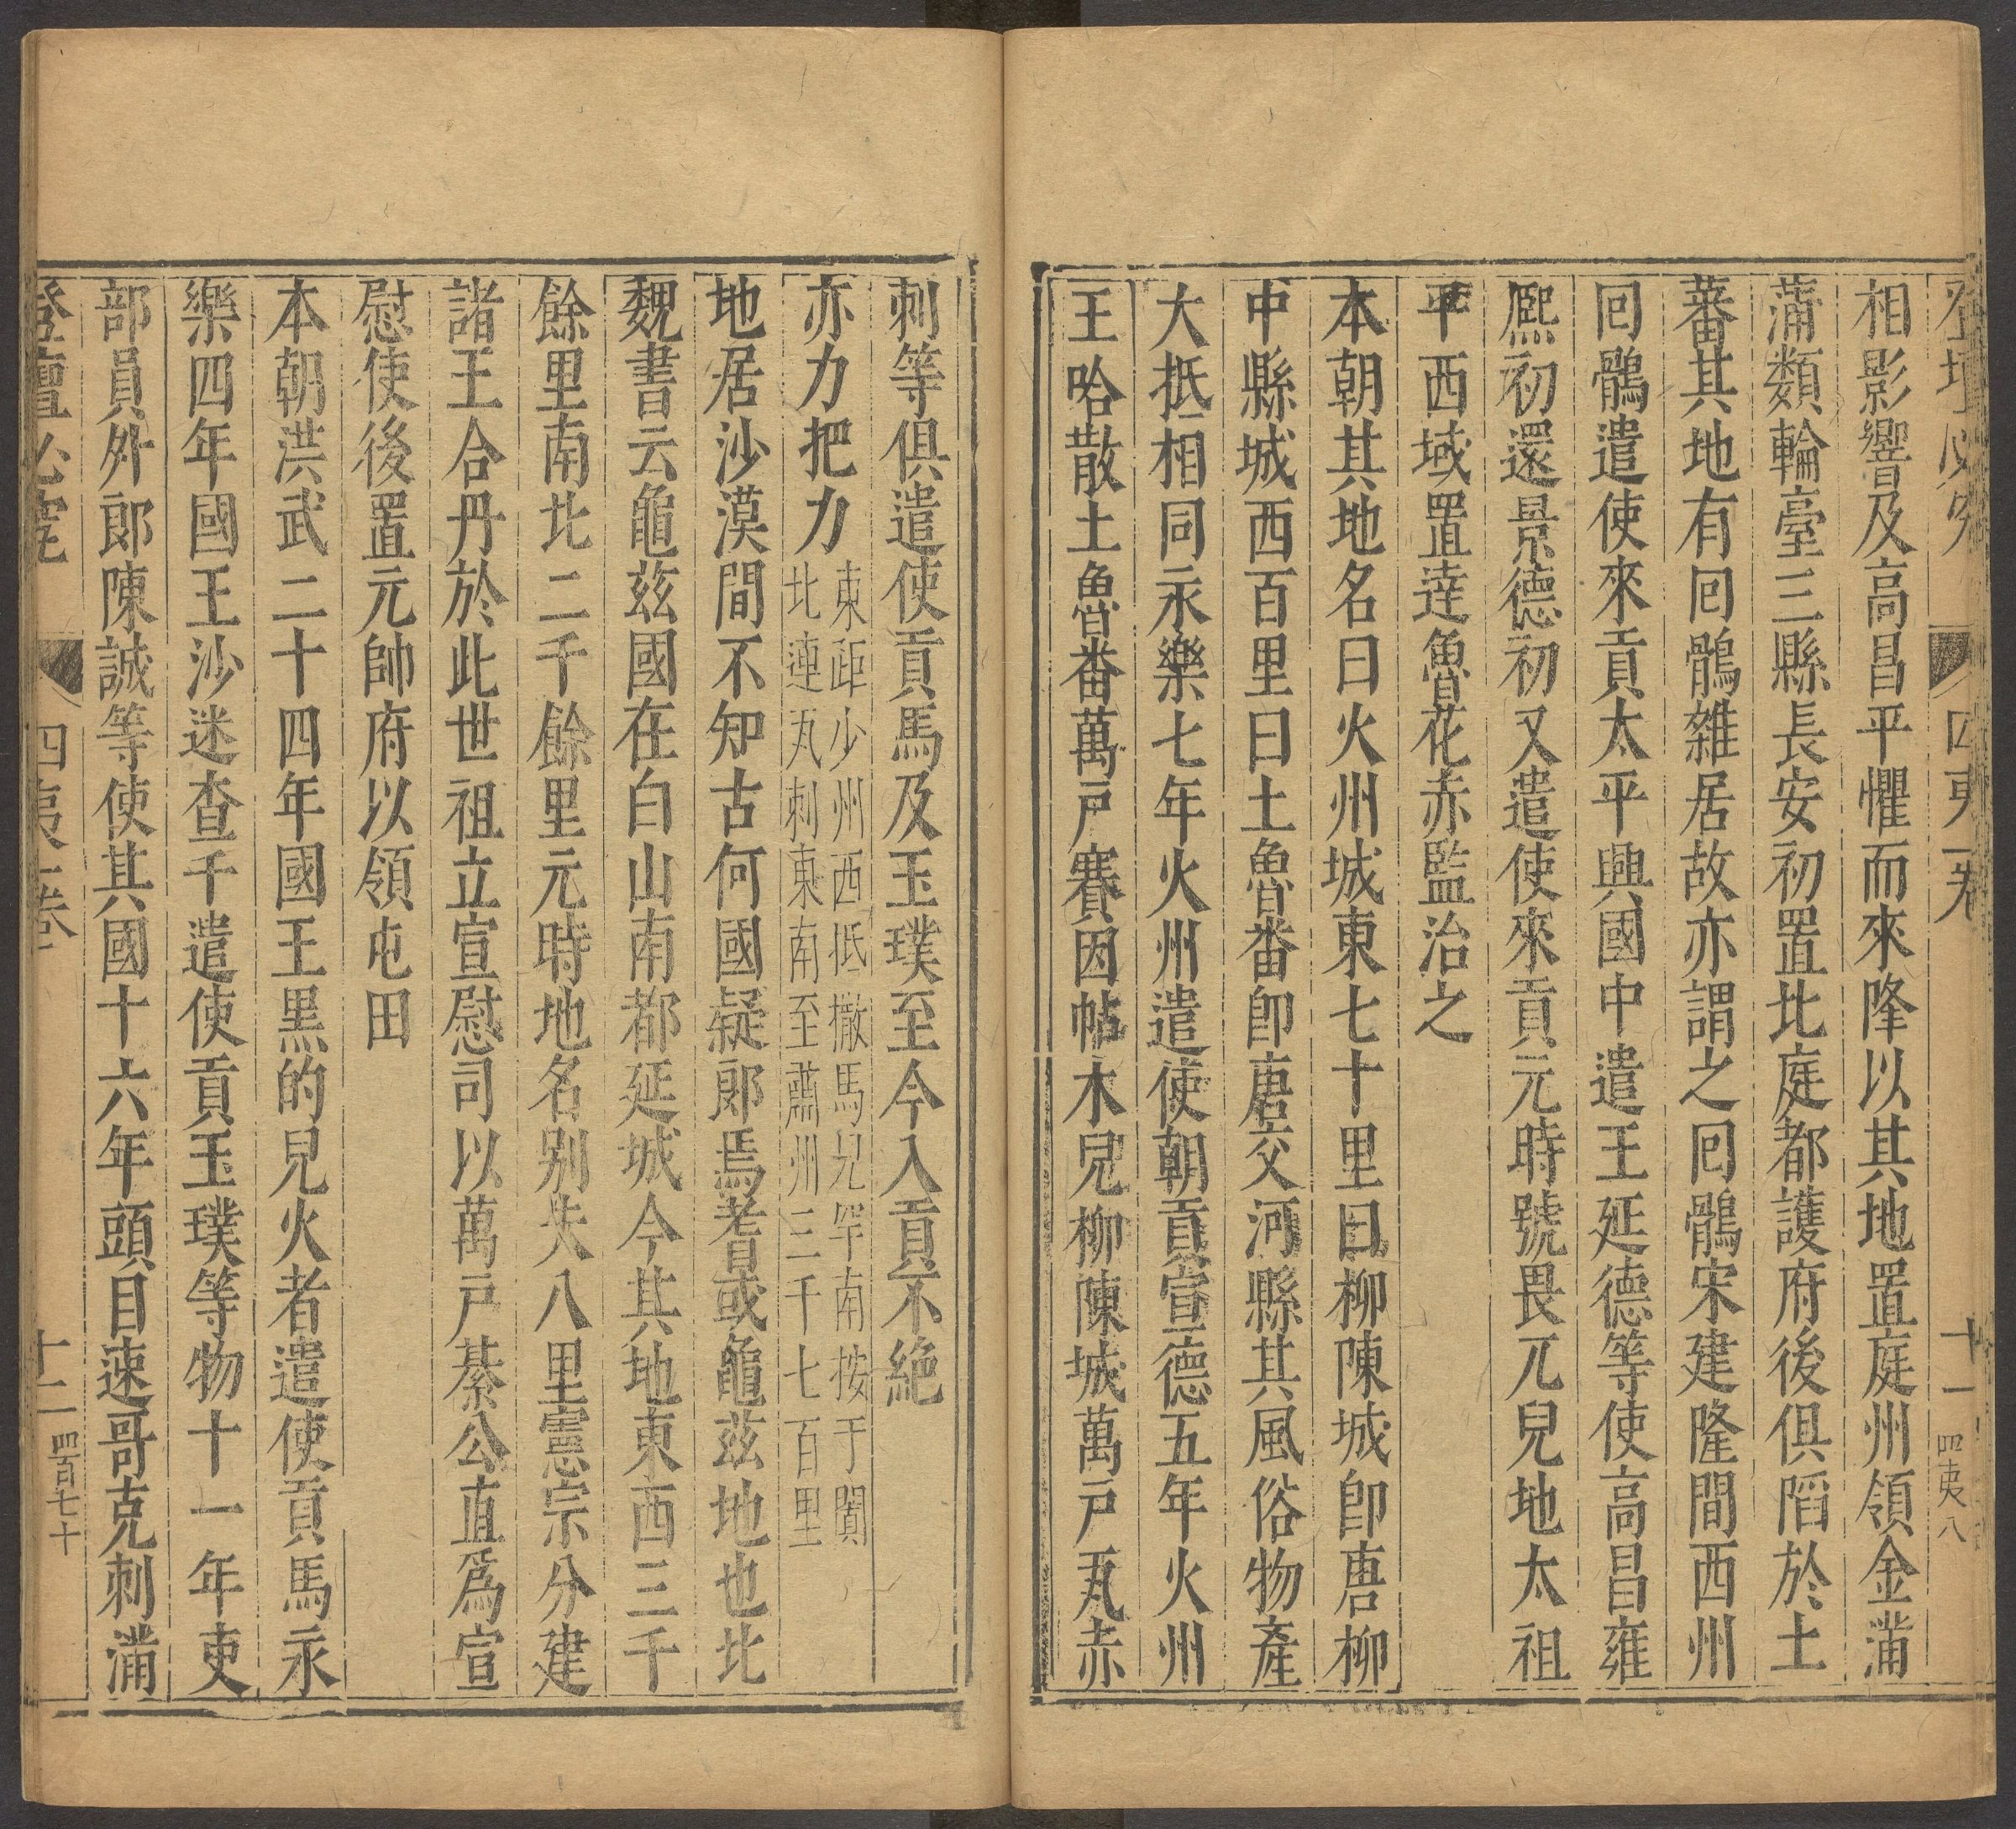 相影響及高昌平懼而來降以其地置庭州領金滿
蒲類輪臺三縣長安初置北庭都護府後俱陷於土
蕃其地有回鶻雜居故亦謂之回鶻宋建隆間西州
回鶻遣使來貢太平興國中遣王延德等使高昌雍
熈初還景德初又遣使來貢元時號畏兀兒地太祖
平西域置達魯花赤監治之
本朝其地名曰火州城東七十里曰柳陳城卽唐柳
中縣城西百里曰土魯番卽唐交河縣其風俗物產
大抵相同永樂七年火州遣使朝貢宣德五年火州
王哈散土魯番萬戶賽因帖木兒柳陳城萬戶瓦赤
刺等俱遣使貢馬及玉璞至今入貢不絕
亦力把力東距少州西抵撒馬兒罕南按于闐
北連瓦刺東南至肅州三千七百里
地居沙漠間不知古何國疑郞焉耆或龜茲地也北
魏書云龜茲國在白山南都延城今其地東西三千
餘里南北二千餘里元時地名別失八里憲宗分建
諸王合丹於此世祖立宣慰司以萬戶綦公直爲宣
慰使後置元帥府以領屯田
本朝洪武二十四年國王黑的兒火者遣使貢馬永
樂四年國王沙迷查千遣使貢玉璞等物十一年吏
部員外郎陳誠等使其國十六年頭目速哥克刺滿
登壇必究
四夷一卷
十二
四百七十
四夷一卷
十一
四夷八